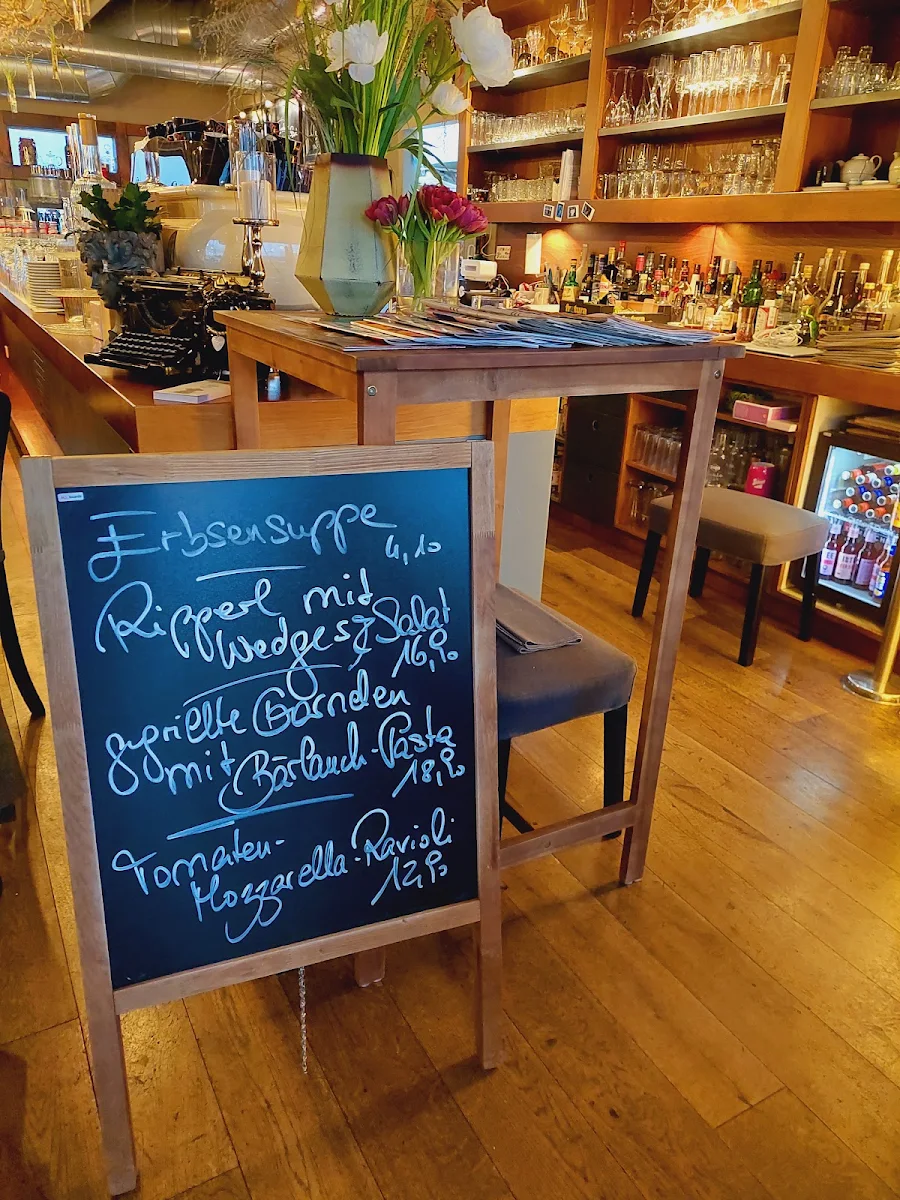 Erbsensuppe
4,10
Ripperl mit
Wedges & Salat
16,90
gegrillte Garnelen
mit Bärlauch-Pasta
18,90
Tomaten-
Mozzarella-Ravioli
12,90